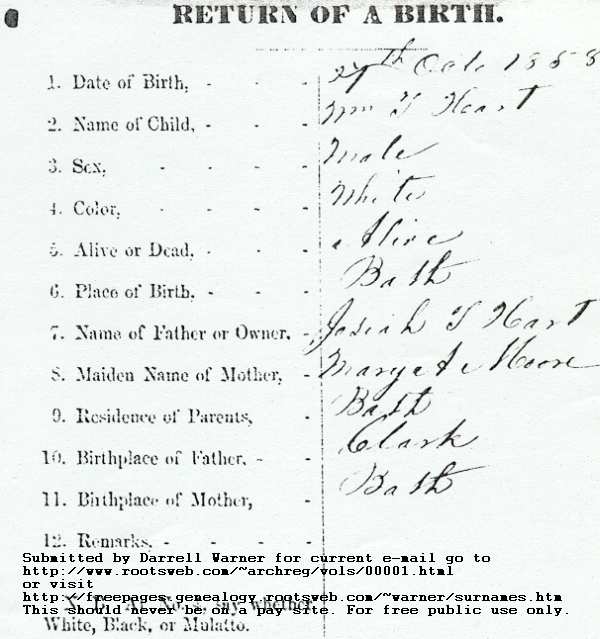 RETURN OF A BIRTH.
1. Date of Birth, - - - 27th Oct. 1858
2. Name of Child, - - - Wm T Heart
3. Sex, - - - - Male
4. Color, - - - - White
5. Alive or Dead, - - - Alive
6. Place of Birth, - - - Bath
7. Name of Father or Owner, - Josiah T Hart
8. Maiden Name of Mother, - Margate Moore
9. Residence of Parents, - Bath
10. Birthplace of Father, - - Clark
11. Birthplace of Mother, - Bath
12. Remarks, - - - -
Submitted by Darrell Warner for current e-mail go to
http://www.rootsweb.com/~archreg/vols/00001.html
or visit
http://freepages.genealogy.rootsweb.com/~warner/surnames.htm
This should never be on a pay site. For free public use only.
White, Black, or Mulatto.